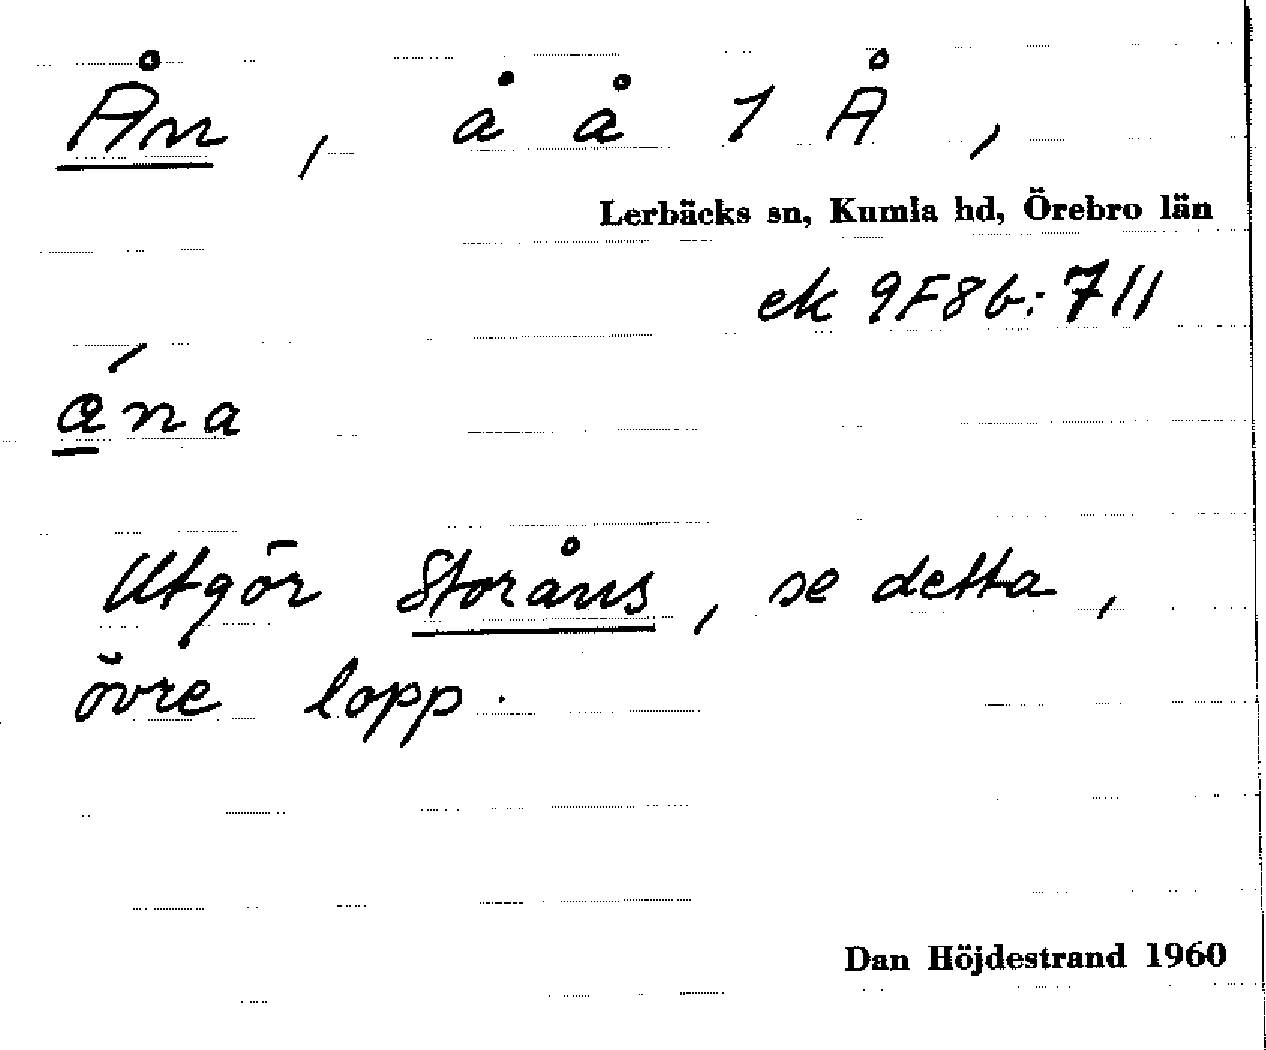 Ån, å å 1 Å,
Lerbäcks sn, Kumla hd, Örebro län
ek 9F8b:711
ána
Utgör Storåns, se detta,
övre lopp.
Dan Höjdestrand 1960